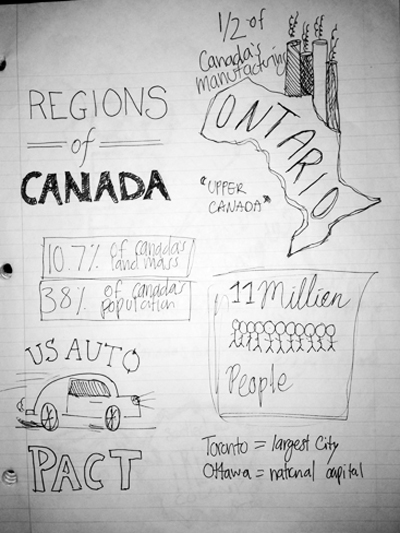 REGIONS
of
CANADA
1/2 of
Canada's
manufacturing
ONTARIO
"UPPER
CANADA"
10.7% of canada's
land mass
38% of canada's
population
11 Million
People
US AUTO
PACT
Toronto = largest City
Ottawa = national capital